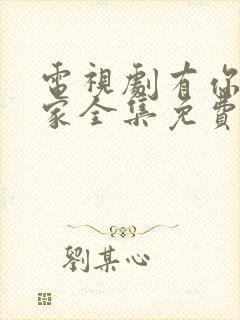 電視劇有你
家全集免費
劉某心